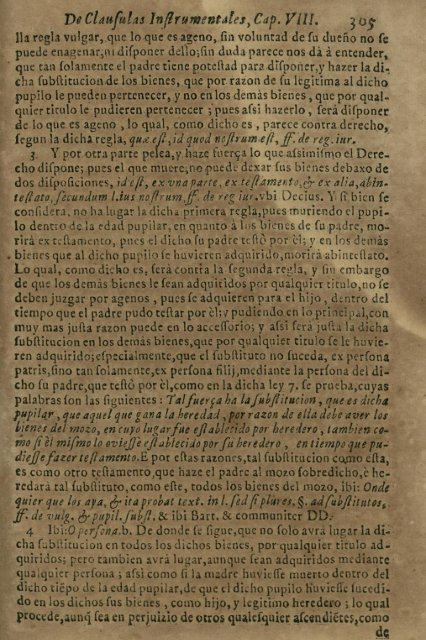 De Clausulas Instrumentales, Cap. VIII. 305
lla regla vulgar, que lo que es ageno, sin voluntad de su dueño no se
puede enagenar, ni disponer dello; sin duda parece nos dà à entender,
que tan solamente el padre tiene potestad para disponer, y hazer la di-
cha substitucion de los bienes, que por razon de su legitima al dicho
pupilo le pueden pertenecer, y no en los demàs bienes, que por qual-
quier titulo le pudieren pertenecer; pues assi hazerlo, serà disponer
de lo que es ageno, lo qual, como dicho es, parece contra derecho,
segun la dicha regla, quæ est, id quod nostrum est, ff. de reg. iur.
3 Y por otra parte pelea, y haze fuerça lo que assimismo el Dere-
cho dispone; pues el que muere, no puede dexar sus bienes debaxo de
dos disposiciones, id est, ex vna parte, ex testamento, & ex alia, abin-
testato, secundum l. ius nostrum, ff. de reg. iur. vbi Decius. Y si bien se
considera, no ha lugar la dicha primera regla, pues muriendo el pupi-
lo dentro de la edad pupilar, en quanto à los bienes de su padre, mo-
rirà ex testamento, pues el dicho su padre testò por èl; y en los demàs
bienes que al dicho pupilo se huvieren adquirido, morirà abintestato.
Lo qual, como dicho es, serà contra la segunda regla, y sin embargo
de que los demàs bienes le sean adquiridos por qualquier titulo, no se
deben juzgar por agenos, pues se adquieren para el hijo, dentro del
tiempo que el padre pudo testar por èl; y pudiendo en lo principal, con
muy mas justa razon puede en lo accessorio; y assi serà justa la dicha
substitucion en los demàs bienes, que por qualquier titulo se le huvie-
ren adquirido; especialmente, que el substituto no suceda, ex persona
patris, sino tan solamente, ex persona filij, mediante la persona del di-
cho su padre, que testò por èl, como en la dicha ley 7. se prueba, cuyas
palabras son las siguientes: Tal fuerça ha la substitucion, que es dicha
pupilar, que aquel que gana la heredad, por razon de ella debe aver los
bienes del mozo, en cuyo lugar fue establecido por heredero, tambien co-
mo si èl mismo lo oviesse establecido por su heredero, en tiempo que pu-
diesse fazer testamento. E por estas razones, tal substitucion como esta,
es como otro testamento, que haze el padre al mozo sobredicho, è he-
redarà tal substituto, como este, todos los bienes del mozo, ibi: Onde
quier que los aya, & ita probat text. in l. sed si plures, §. ad substitutos,
ff. de vulg. & pupil. subst. & ibi Bart. & communiter DD.
4 Ibi: O persona. b. De donde se sigue, que no solo avrà lugar la di-
cha substitucion en todos los dichos bienes, por qualquier titulo ad-
quiridos; pero tambien avrà lugar, aunque sean adquiridos mediante
qualquier persona; assi como si la madre huviesse muerto dentro del
dicho tiẽpo de la edad pupilar, de que el dicho pupilo huviesse sucedi-
do en los dichos sus bienes, como hijo, y legitimo heredero; lo qual
procede, aunq̃ sea en perjuizio de otros qualesquier ascendiẽtes, como
de